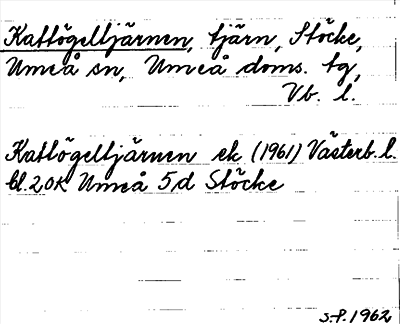 Kattögeltjärnen, tjärn, Stöcke,
Umeå sn, Umeå doms. tg,
Vb. l.
Kattögeltjärnen ek (1961) Västerb. l.
bl. 20K Umeå 5d Stöcke
S.P. 1962